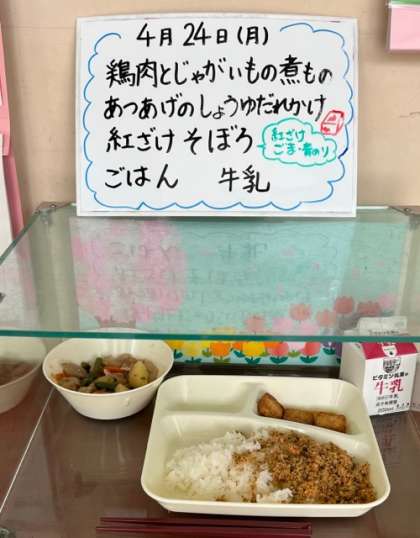 4月24日(月)
鶏肉とじゃがいもの煮もの
あつあげのしょうゆだれかけ
紅ざけそぼろ
紅ざけ
ごま・青のり
ごはん 牛乳
ビタミン乳業の
牛乳